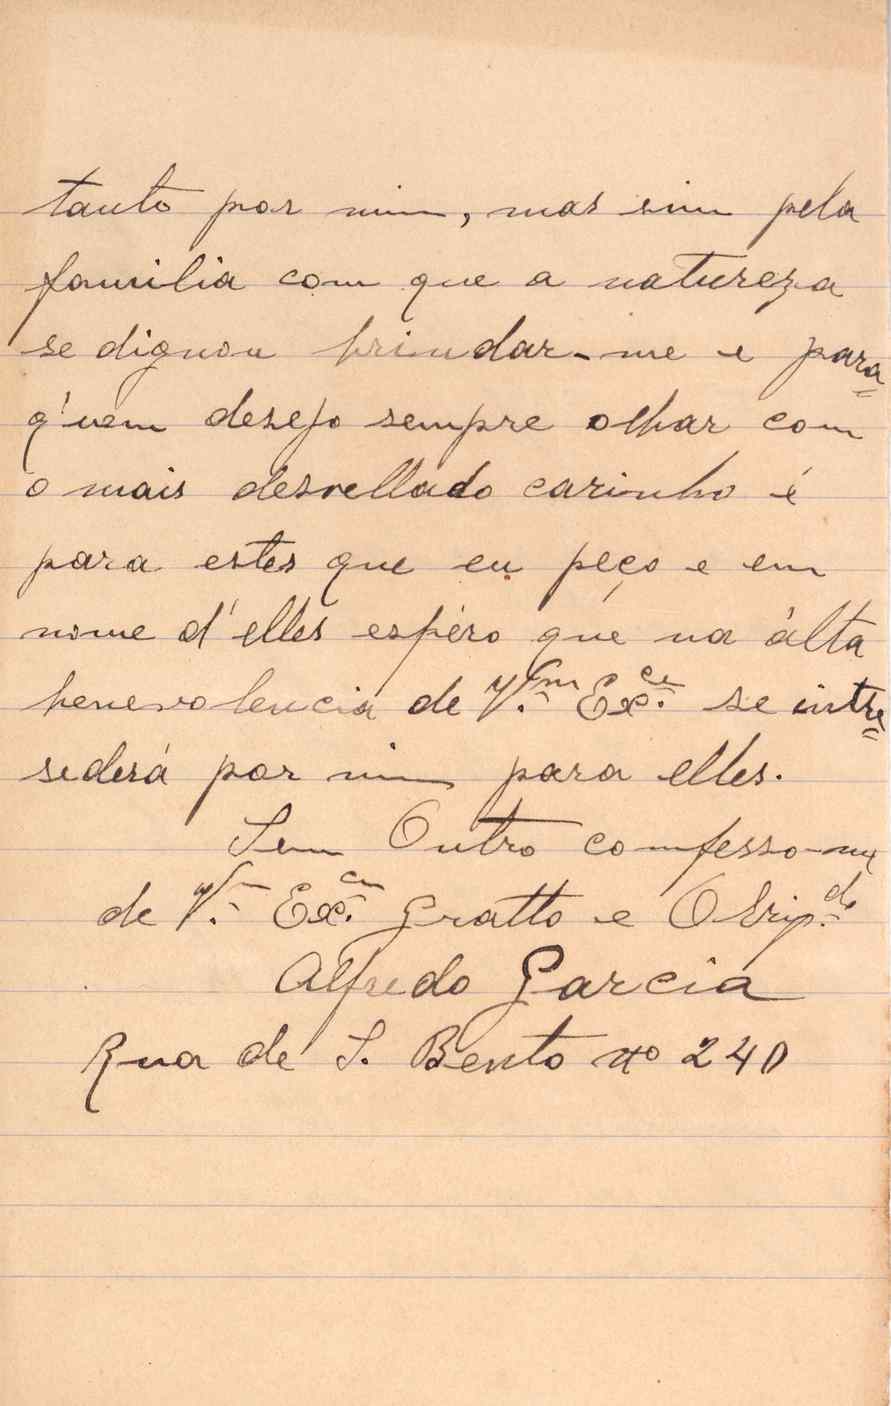 tanto por mim, mas sim pela
familia com que a natureza
se dignou brindar-me e para=
q'uem desejo sempre olhar com
o mais desvellado carinho é
para estes que eu peço e em
nome d'elles espéro que na álta
benevolencia de V.ª Ex.cia se intre=
sederá por mim para elles.
Sem Outro comfesso-me
de V.ª Ex.cia Gratto e Obrig.do
Alfredo Garcia
Rua de S. Bento nº 240